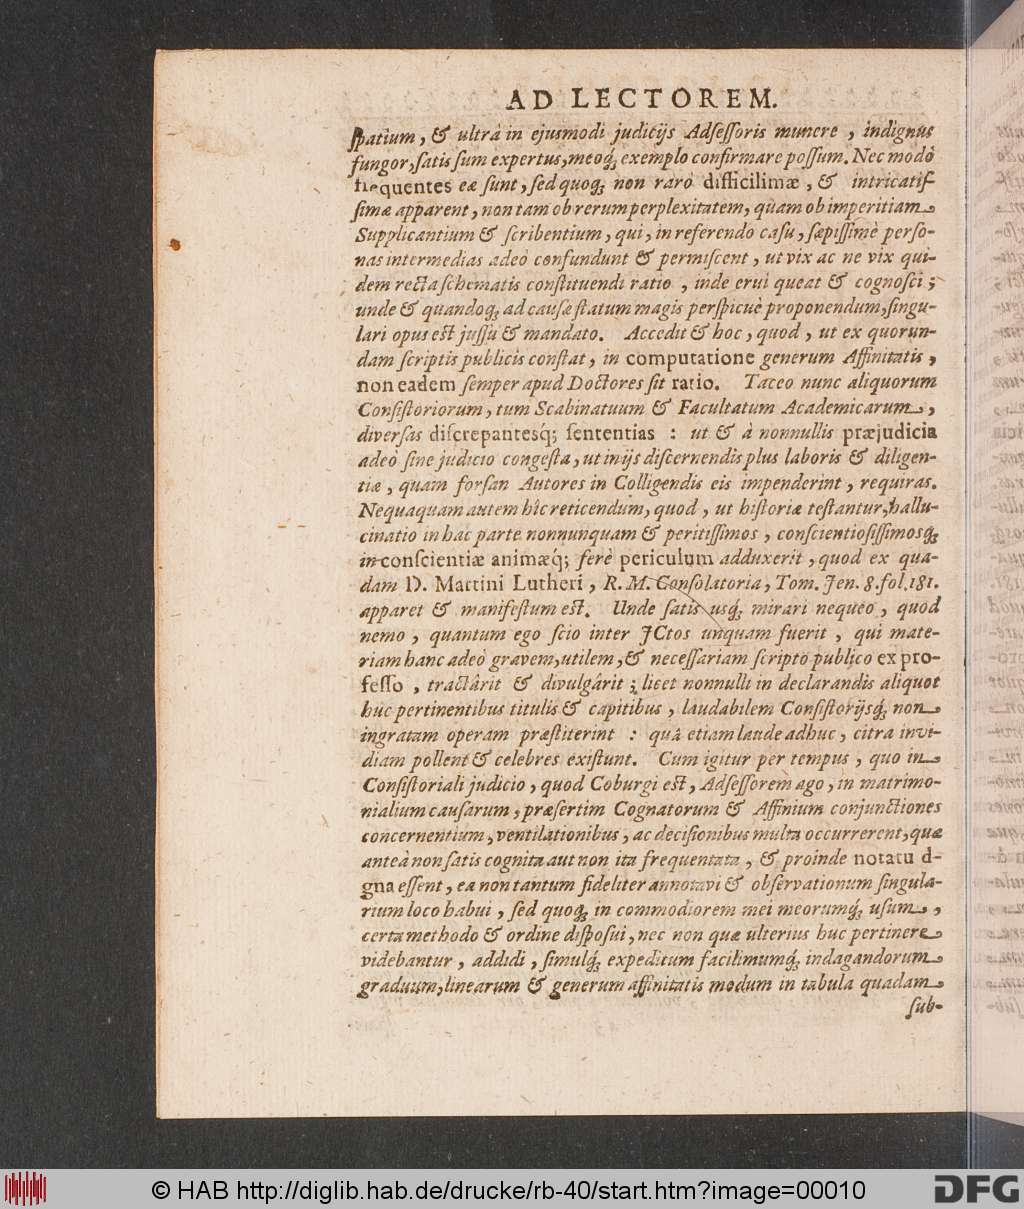 AD LECTOREM.
ſpatium, & ultrà in ejusmodi judicijs Adſeſſoris munere, indignus
fungor, ſatis ſum expertus, meoq́; exemplo confirmare poſſum. Nec modò
frequentes eæ ſunt, ſed quoq́; non rarò difficilimæ, & intricatiſ-
ſimæ apparent, non tam ob rerum perplexitatem, quàm ob imperitiam
Supplicantium & ſcribentium, qui, in referendo caſu, ſæpiſſimè perſo-
nas intermedias adeò confundunt & permiſcent, ut vix ac ne vix qui-
dem recta ſchematis conſtituendi ratio, inde erui queat & cognoſci;
unde & quandoq́; ad cauſæ ſtatum magis perſpicuè proponendum, ſingu-
lari opus eſt juſſu & mandato. Accedit & hoc, quod, ut ex quorun-
dam ſcriptis publicis conſtat, in computatione generum Affinitatis,
non eadem ſemper apud Doctores ſit ratio. Taceo nunc aliquorum
Conſiſtoriorum, tum Scabinatuum & Facultatum Academicarum,
diverſas diſcrepantesq́; ſententias: ut & à nonnullis præjudicia
adeò ſine judicio congeſta, ut in ijs diſcernendis plus laboris & diligen-
tiæ, quam forſan Autores in Colligendis eis impenderint, requiras.
Nequaquam autem hîc reticendum, quod, ut hiſtoriæ teſtantur, hallu-
cinatio in hac parte nonnunquam & peritiſſimos, conſcientioſiſſimosq́;
in conſcientiæ animæq́; ferè periculum adduxerit, quod ex qua-
dam D. Martini Lutheri, R. M. Conſolatoria, Tom. Jen. 8. fol. 181.
apparet & manifeſtum eſt. Unde ſatis usq́; mirari nequeo, quod
nemo, quantum ego ſcio inter JCtos unquam fuerit, qui mate-
riam hanc adeò gravem, utilem, & neceſſariam ſcripto publico ex pro-
feſſo, tractârit & divulgârit; licet nonnulli in declarandis aliquot
huc pertinentibus titulis & capitibus, laudabilem Conſiſtorijsq́; non
ingratam operam præſtiterint: quâ etiam laude adhuc, citra invi-
diam pollent & celebres exiſtunt. Cum igitur per tempus, quo in
Conſiſtoriali judicio, quod Coburgi eſt, Adſeſſorem ago, in matrimo-
nialium cauſarum, præſertim Cognatorum & Affinium conjunctiones
concernentium, ventilationibus, ac deciſionibus multa occurrerent, quæ
anteà non ſatis cognita aut non ita frequentata, & proinde notatu d-
gna eſſent, ea non tantum fideliter annotavi & obſervationum ſingula-
rium loco habui, ſed quoq́; in commodiorem mei meorumq́; uſum,
certa methodo & ordine diſpoſui, nec non quæ ulterius huc pertinere
videbantur, addidi, ſimulq́; expeditum facilimumq́; indagandorum
graduum, linearum & generum affinitatis modum in tabula quadam
ſub-
© HAB http://diglib.hab.de/drucke/rb-40/start.htm?image=00010
DFG